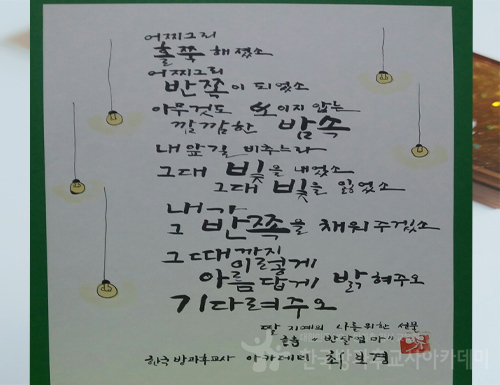 어찌그리
홀쭉 해졌소
어찌그리
반쪽이 되었소
아무것도 보이지 않는
깜깜한 밤속
내 앞길 비추느라
그대 빛을 내었소
그대 빛을 잃었소
내가
그 반쪽을 채워주겠소
그때까지
이렇게
아름답게 밝혀주오
기다려주오
딸 지예의 나를위한 선물
"반달엄마"
한국 방과후교사 아카데미 최보경
한국방과후교사아카데미